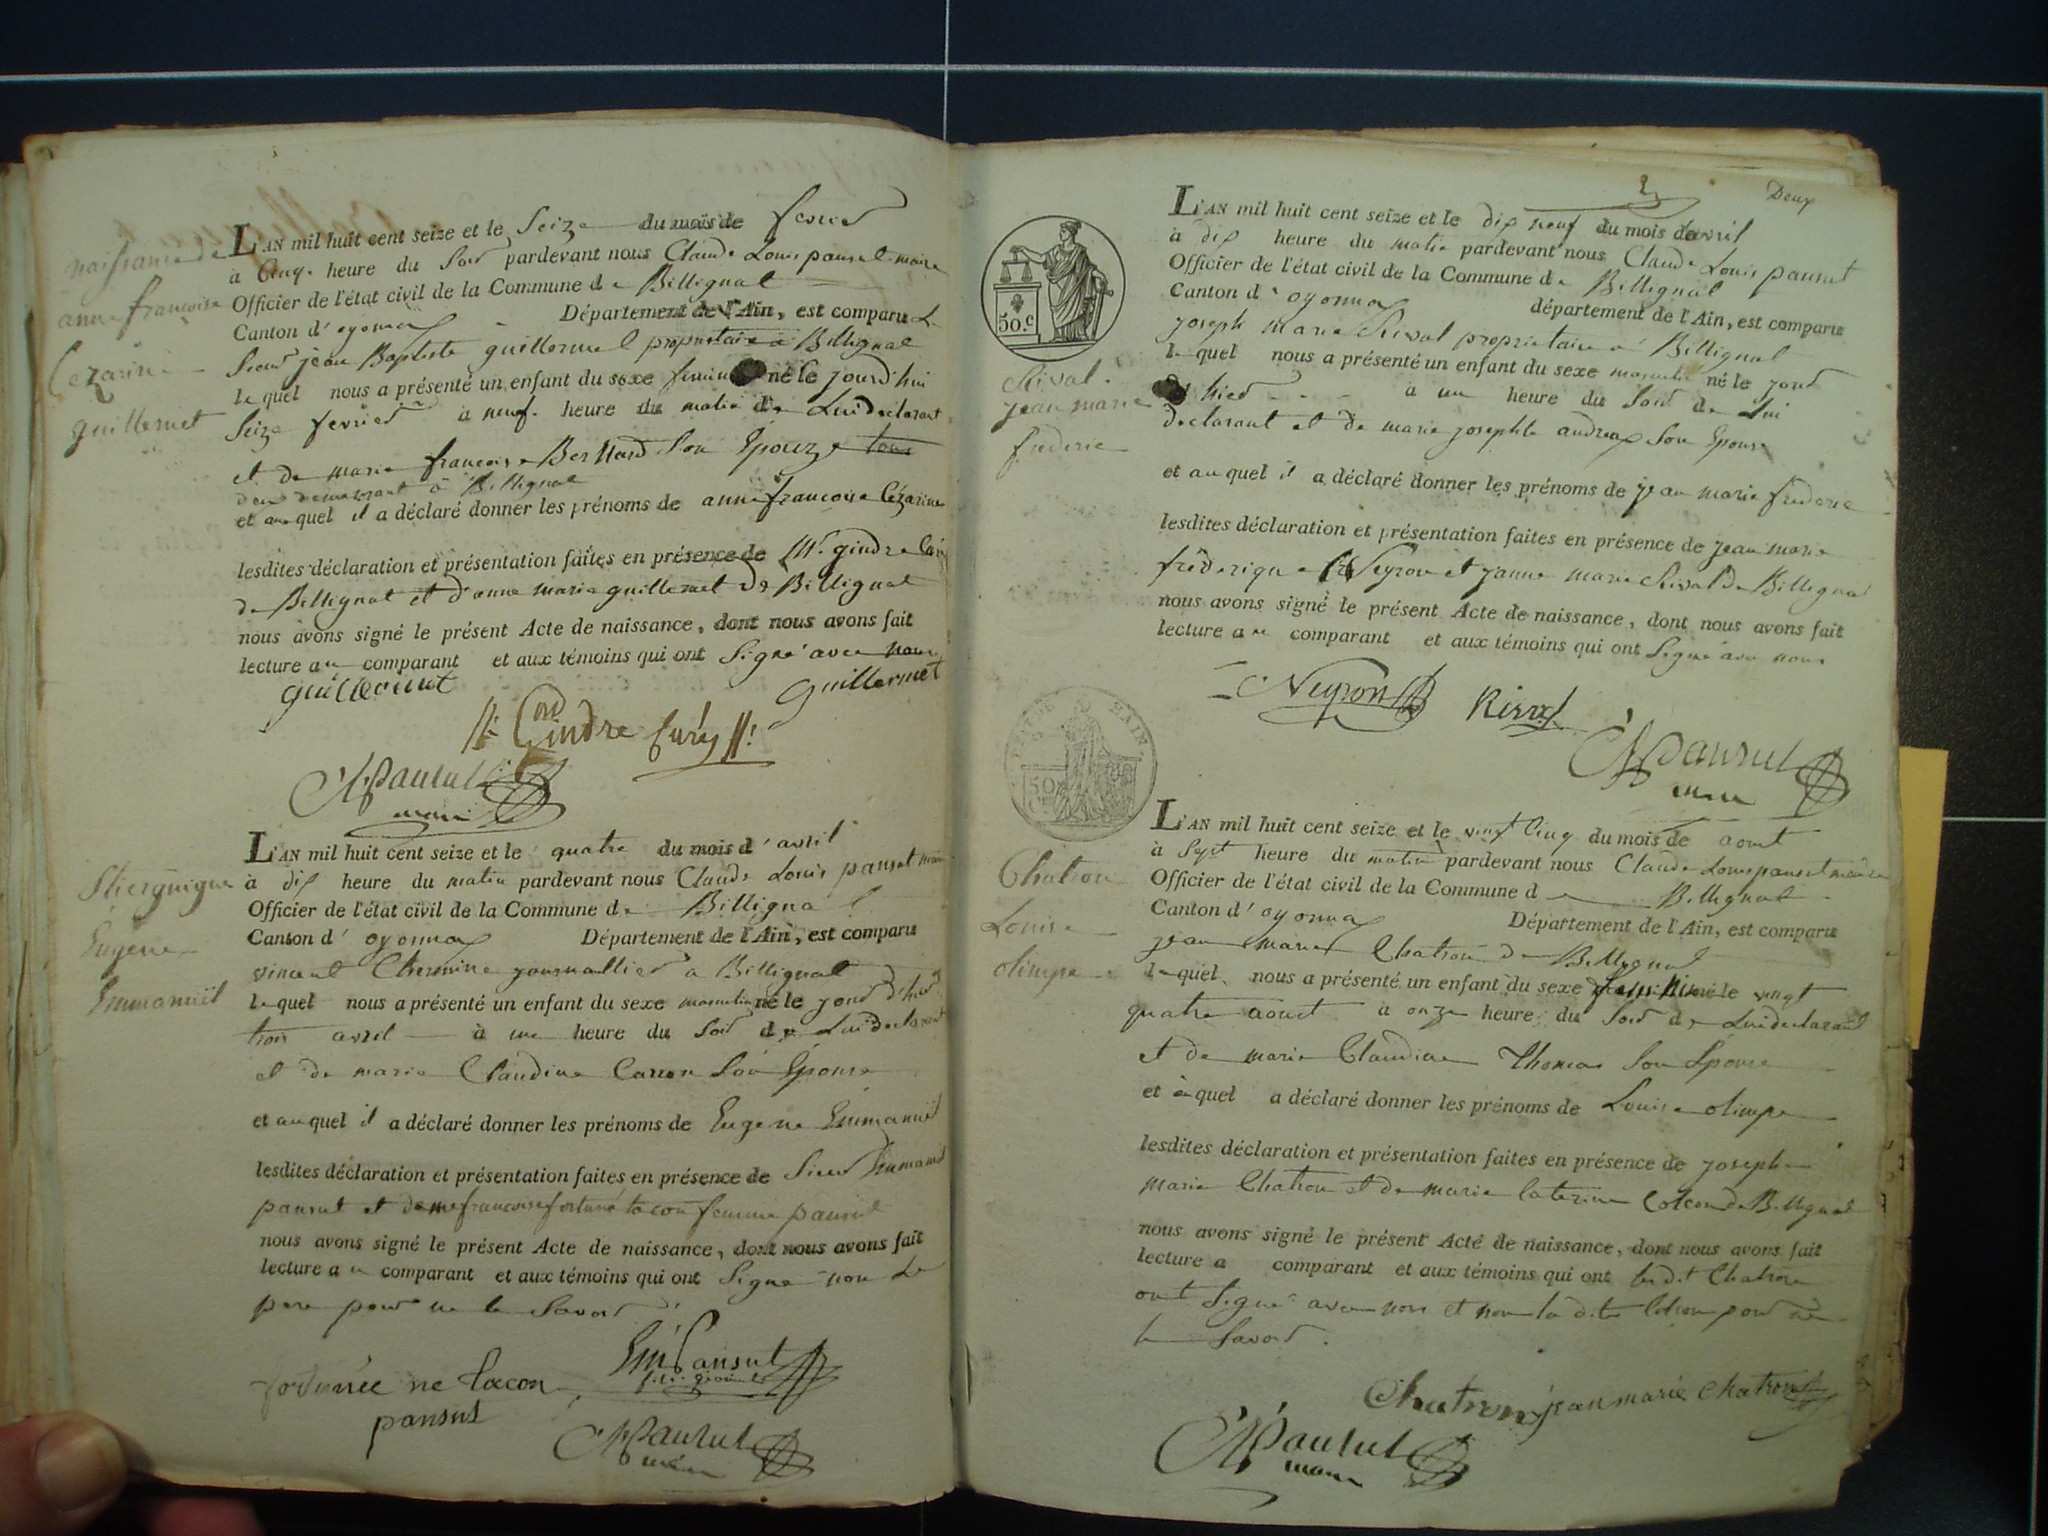 naissance de
anne françoise
Cezarine
guillermet
L'AN mil huit cent seize et le Seize du mois de fevrier
à Cinq heure du Soir pardevant nous Claude Louis pansut maire
Officier de l'état civil de la Commune de Billignat
Canton d'oyonnax Département de l'Ain, est comparu Le
Sieur jean Baptiste guillermet proprietaire a Billignat
lequel nous a présenté un enfant du sexe feminin né le jourd'hui
Seize fevrier a neuf heure du matin de Lui declarant
et de marie francoise Bernard Son Epouze tous
deux demeurant a Billignat
et auquel il a déclaré donner les prénoms de anne francoise Cézarine
lesdites déclaration et présentation faites en présence de Mr. gindre Curé
de Billignat et d'anne marie guillermet de Billignat
nous avons signé le présent Acte de naissance, dont nous avons fait
lecture au comparant et aux témoins qui ont Signé avec nous
guillermet guillermet
Gindre Curé
Pansut
maire
Eugene
Emmanuël
L'AN mil huit cent seize et le quatre du mois d'avril
à dix heure du matin pardevant nous Claude Louis pansut maire
Officier de l'état civil de la Commune de Billignat
Canton d'oyonnax Département de l'Ain, est comparu
vincent journallier a Billignat
lequel nous a présenté un enfant du sexe masculin né le jour d'hier
trois avril à une heure du Soir de Lui declarant
et de marie Claudine Carron Son Epouse
et auquel il a déclaré donner les prénoms de Eugene Emmanuël
lesdites déclaration et présentation faites en présence de Sieur Emmanuel
pansut et de me francoise fortuné tacon femme pansut
nous avons signé le présent Acte de naissance, dont nous avons fait
lecture au comparant et aux témoins qui ont Signé non Le
pere pour ne le Savoir
fortunée ne tacon
pansut
Em Pansut
Pansut
maire
2 Deux
50.c
Rival
jean marie
frederic
L'AN mil huit cent seize et le dix neuf du mois davril
à dix heure du matin pardevant nous Claude Louis pansut
Officier de l'état civil de la Commune de Billignat
Canton d'oyonnax département de l'Ain, est comparu
joseph marie Rival proprietaire a Billignat
lequel nous a présenté un enfant du sexe masculin né le jour
hier à une heure du Soir de Lui
declarant et de marie josephte andreax Son Epouse
et auquel il a déclaré donner les prénoms de jean marie frederic
lesdites déclaration et présentation faites en présence de jean marie
frederique Neyron et janne marie Rival de Billignat
nous avons signé le présent Acte de naissance, dont nous avons fait
lecture au comparant et aux témoins qui ont Signé avec nous
Neyron Rival
Pansut
maire
50
Chatron
Louise
olimpe
L'AN mil huit cent seize et le vingt Cinq du mois de aout
à Sept heure du matin pardevant nous Claude Louis pansut maire
Officier de l'état civil de la Commune de Billignat
Canton d'oyonnax Département de l'Ain, est comparu
jean marie Chatron de Billignat
lequel nous a présenté un enfant du sexe feminin né le vingt
quatre aout à onze heure du Soir de Lui declarant
et de marie Claudine Thomas Son Epouse
et àquel a déclaré donner les prénoms de Louise olimpe
lesdites déclaration et présentation faites en présence de joseph
marie Chatron et de marie Caterine de Billignat
nous avons signé le présent Acte de naissance, dont nous avons fait
lecture a comparant et aux témoins qui ont les dit Chatron
ont Signé avec nous et non la dite pour ne
le Savoir.
Chatron jean marie Chatron
Pansut
maire